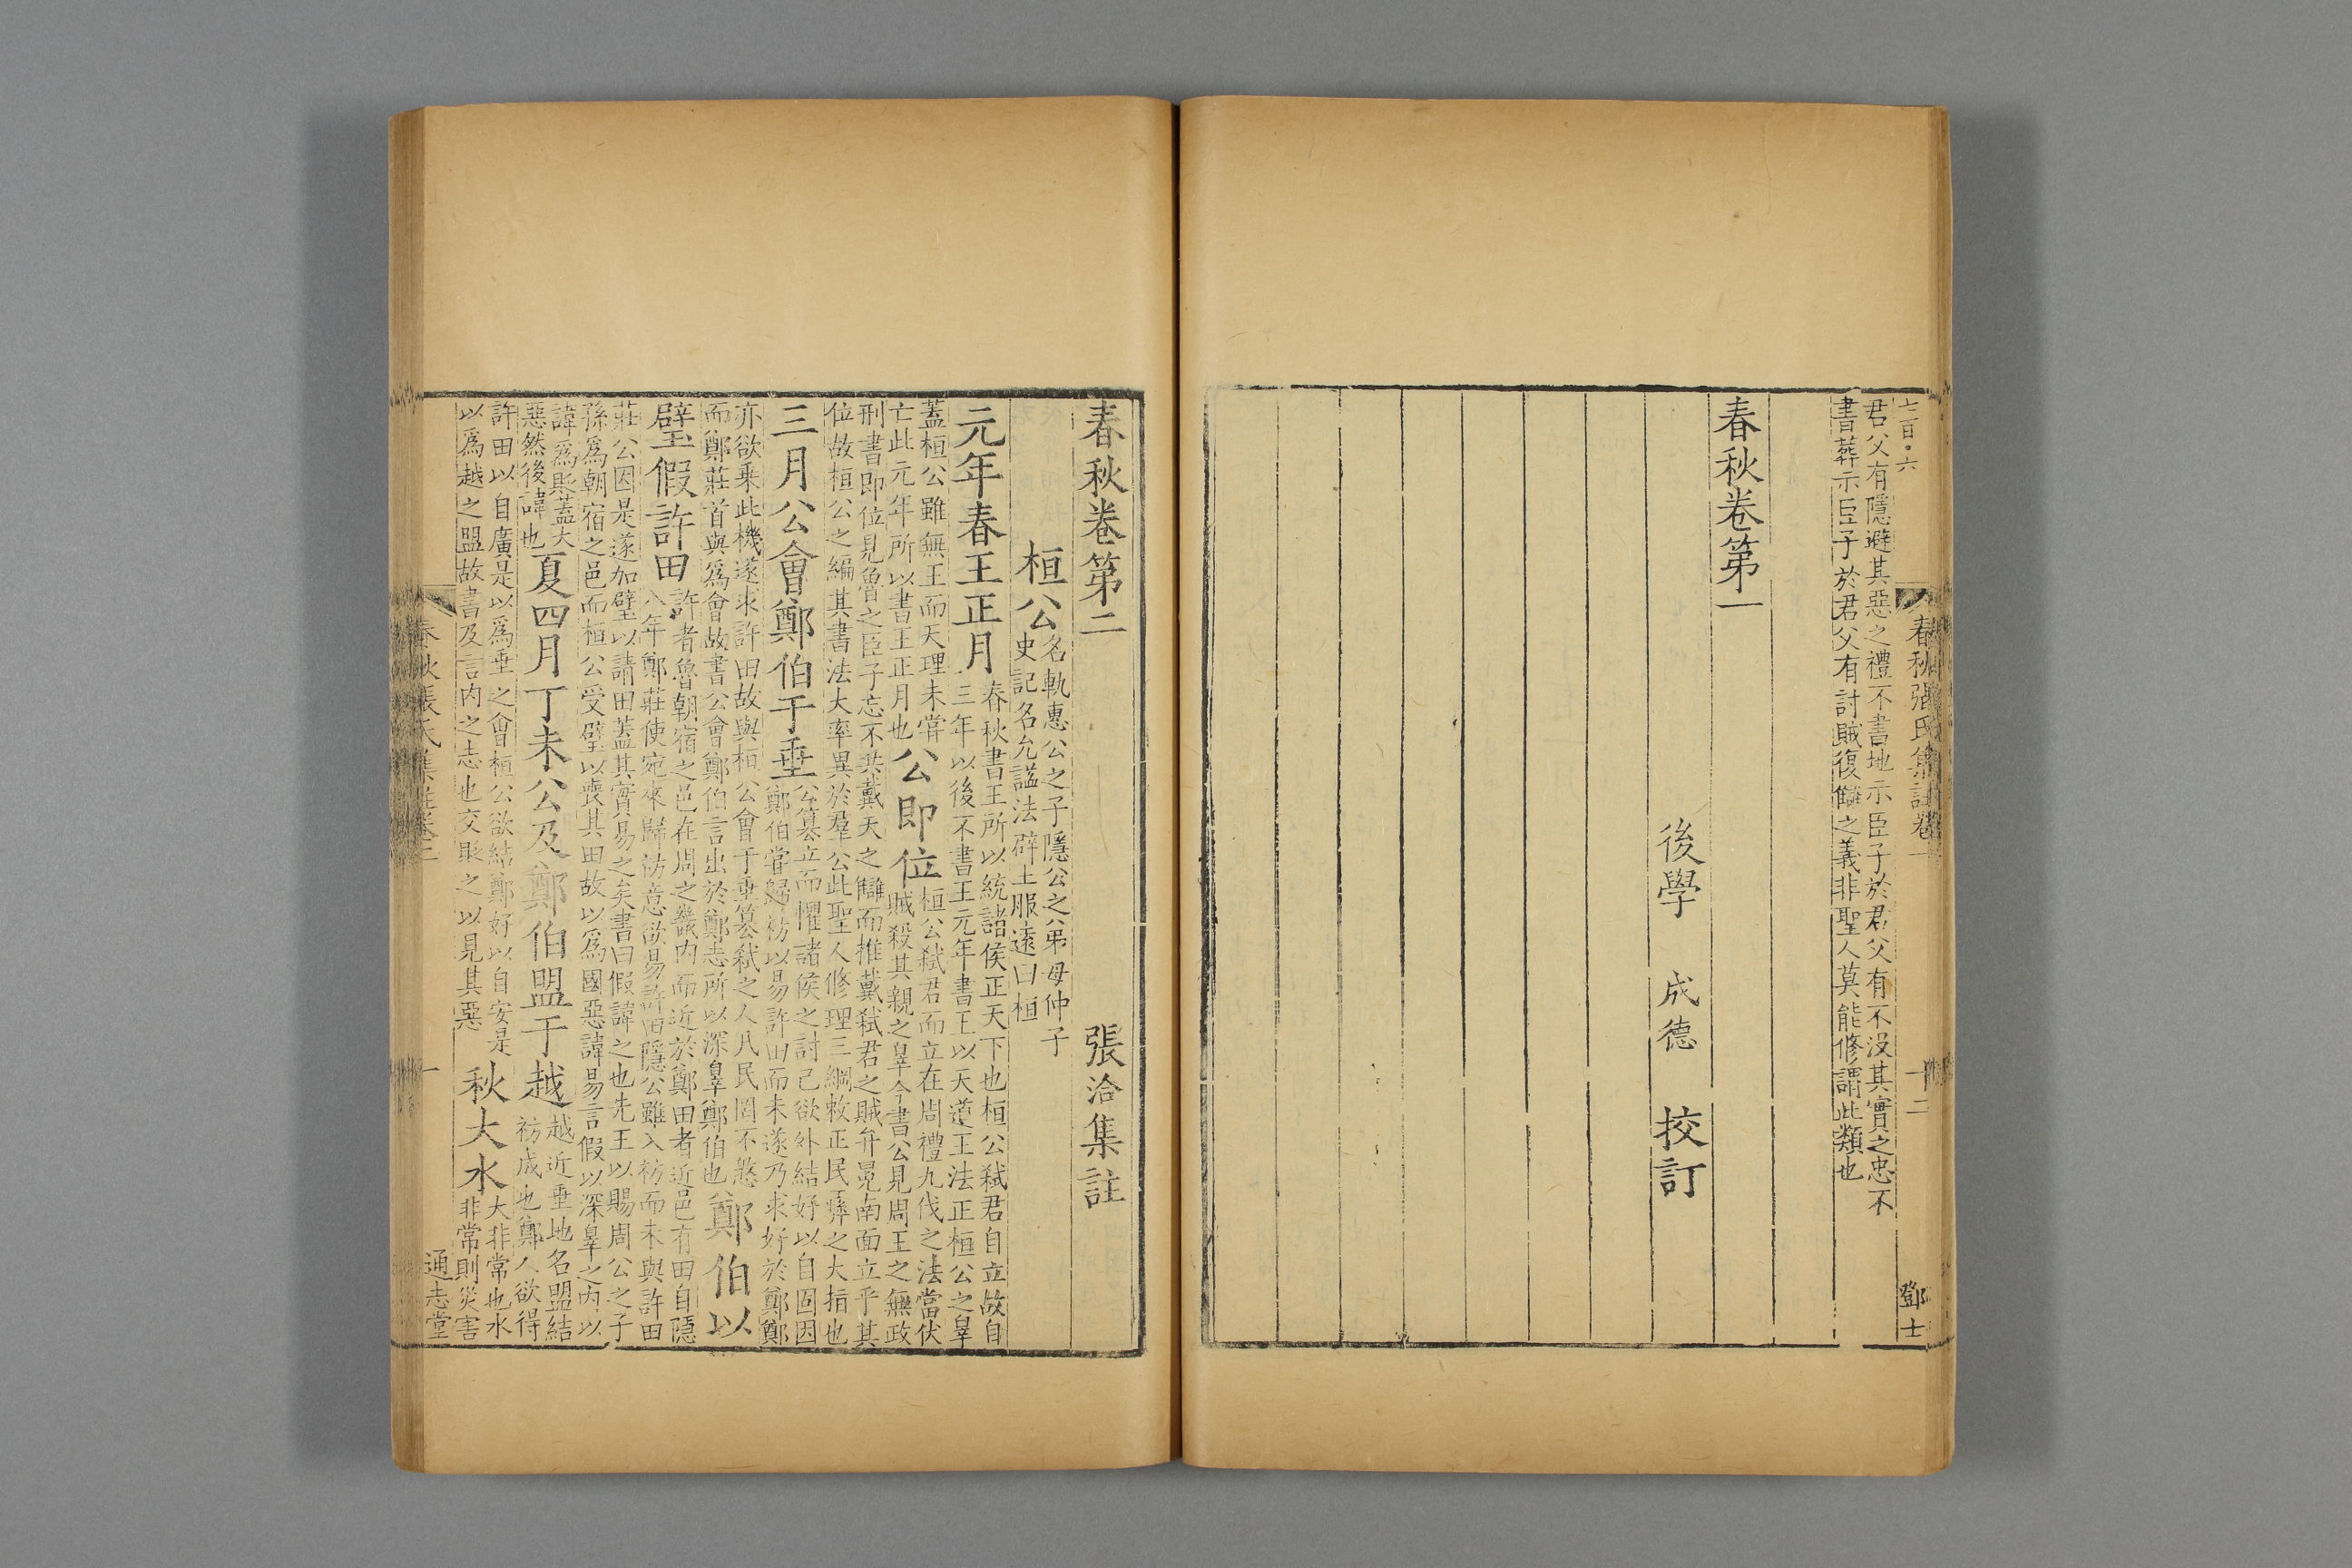 君父有隱避其惡之禮不書地示臣子於君父有不没其實之忠不
書葬示臣子於君父有討賊復讎之義非聖人莫能修謂此類也
春秋卷第一
後學 成德 挍訂
鄧士
春秋卷第二 張洽集註
桓公名軌惠公之子隱公之弟母仲子
史記名允謚法辟土服遠曰桓
元年春王正月春秋書王所以統諸侯正天下也桓公弑君自立故自
三年以後不書王元年書王以天道王法正桓公之辠
蓋桓公雖無王而天理未嘗
亡此元年所以書王正月也
公即位桓公弑君而立在周禮九伐之法當伏
賊殺其親之辠今書公見周王之無政
刑書即位見魯之臣子忘不共戴天之讎而推戴弑君之賊弁冕南面立乎其
位故桓公之編其書法大率異於羣公此聖人修理三綱敕正民彝之大指也
三月公會鄭伯于垂公篡立而懼諸侯之討己欲外結好以自固因
鄭伯嘗歸祊以易許田而未遂乃求好於鄭鄭
亦欲乗此機遂求許田故與桓公會于垂篡弑之人凡民罔不憝
而鄭莊首與爲會故書公會鄭伯言出於鄭志所以深辠鄭伯也
鄭伯以
璧假許田許者魯朝宿之邑在周之畿内而近於鄭田者近邑有田自隱
八年鄭莊使宛來歸祊意欲易許田隱公雖入祊而未與許田
莊公因是遂加璧以請田蓋其實易之矣書曰假諱之也先王以賜周公之子
孫爲朝宿之邑而桓公受璧以喪其田故以爲國惡諱易言假以深辠之内以
諱爲貶蓋大
惡然後諱也
夏四月丁未公及鄭伯盟于越越近垂地名盟結
祊成也鄭人欲得
許田以自廣是以爲垂之會桓公欲結鄭好以自安是
以爲越之盟故書及言内之志也交貶之以見其惡
秋大水大非常也水
非常則災害
通志堂